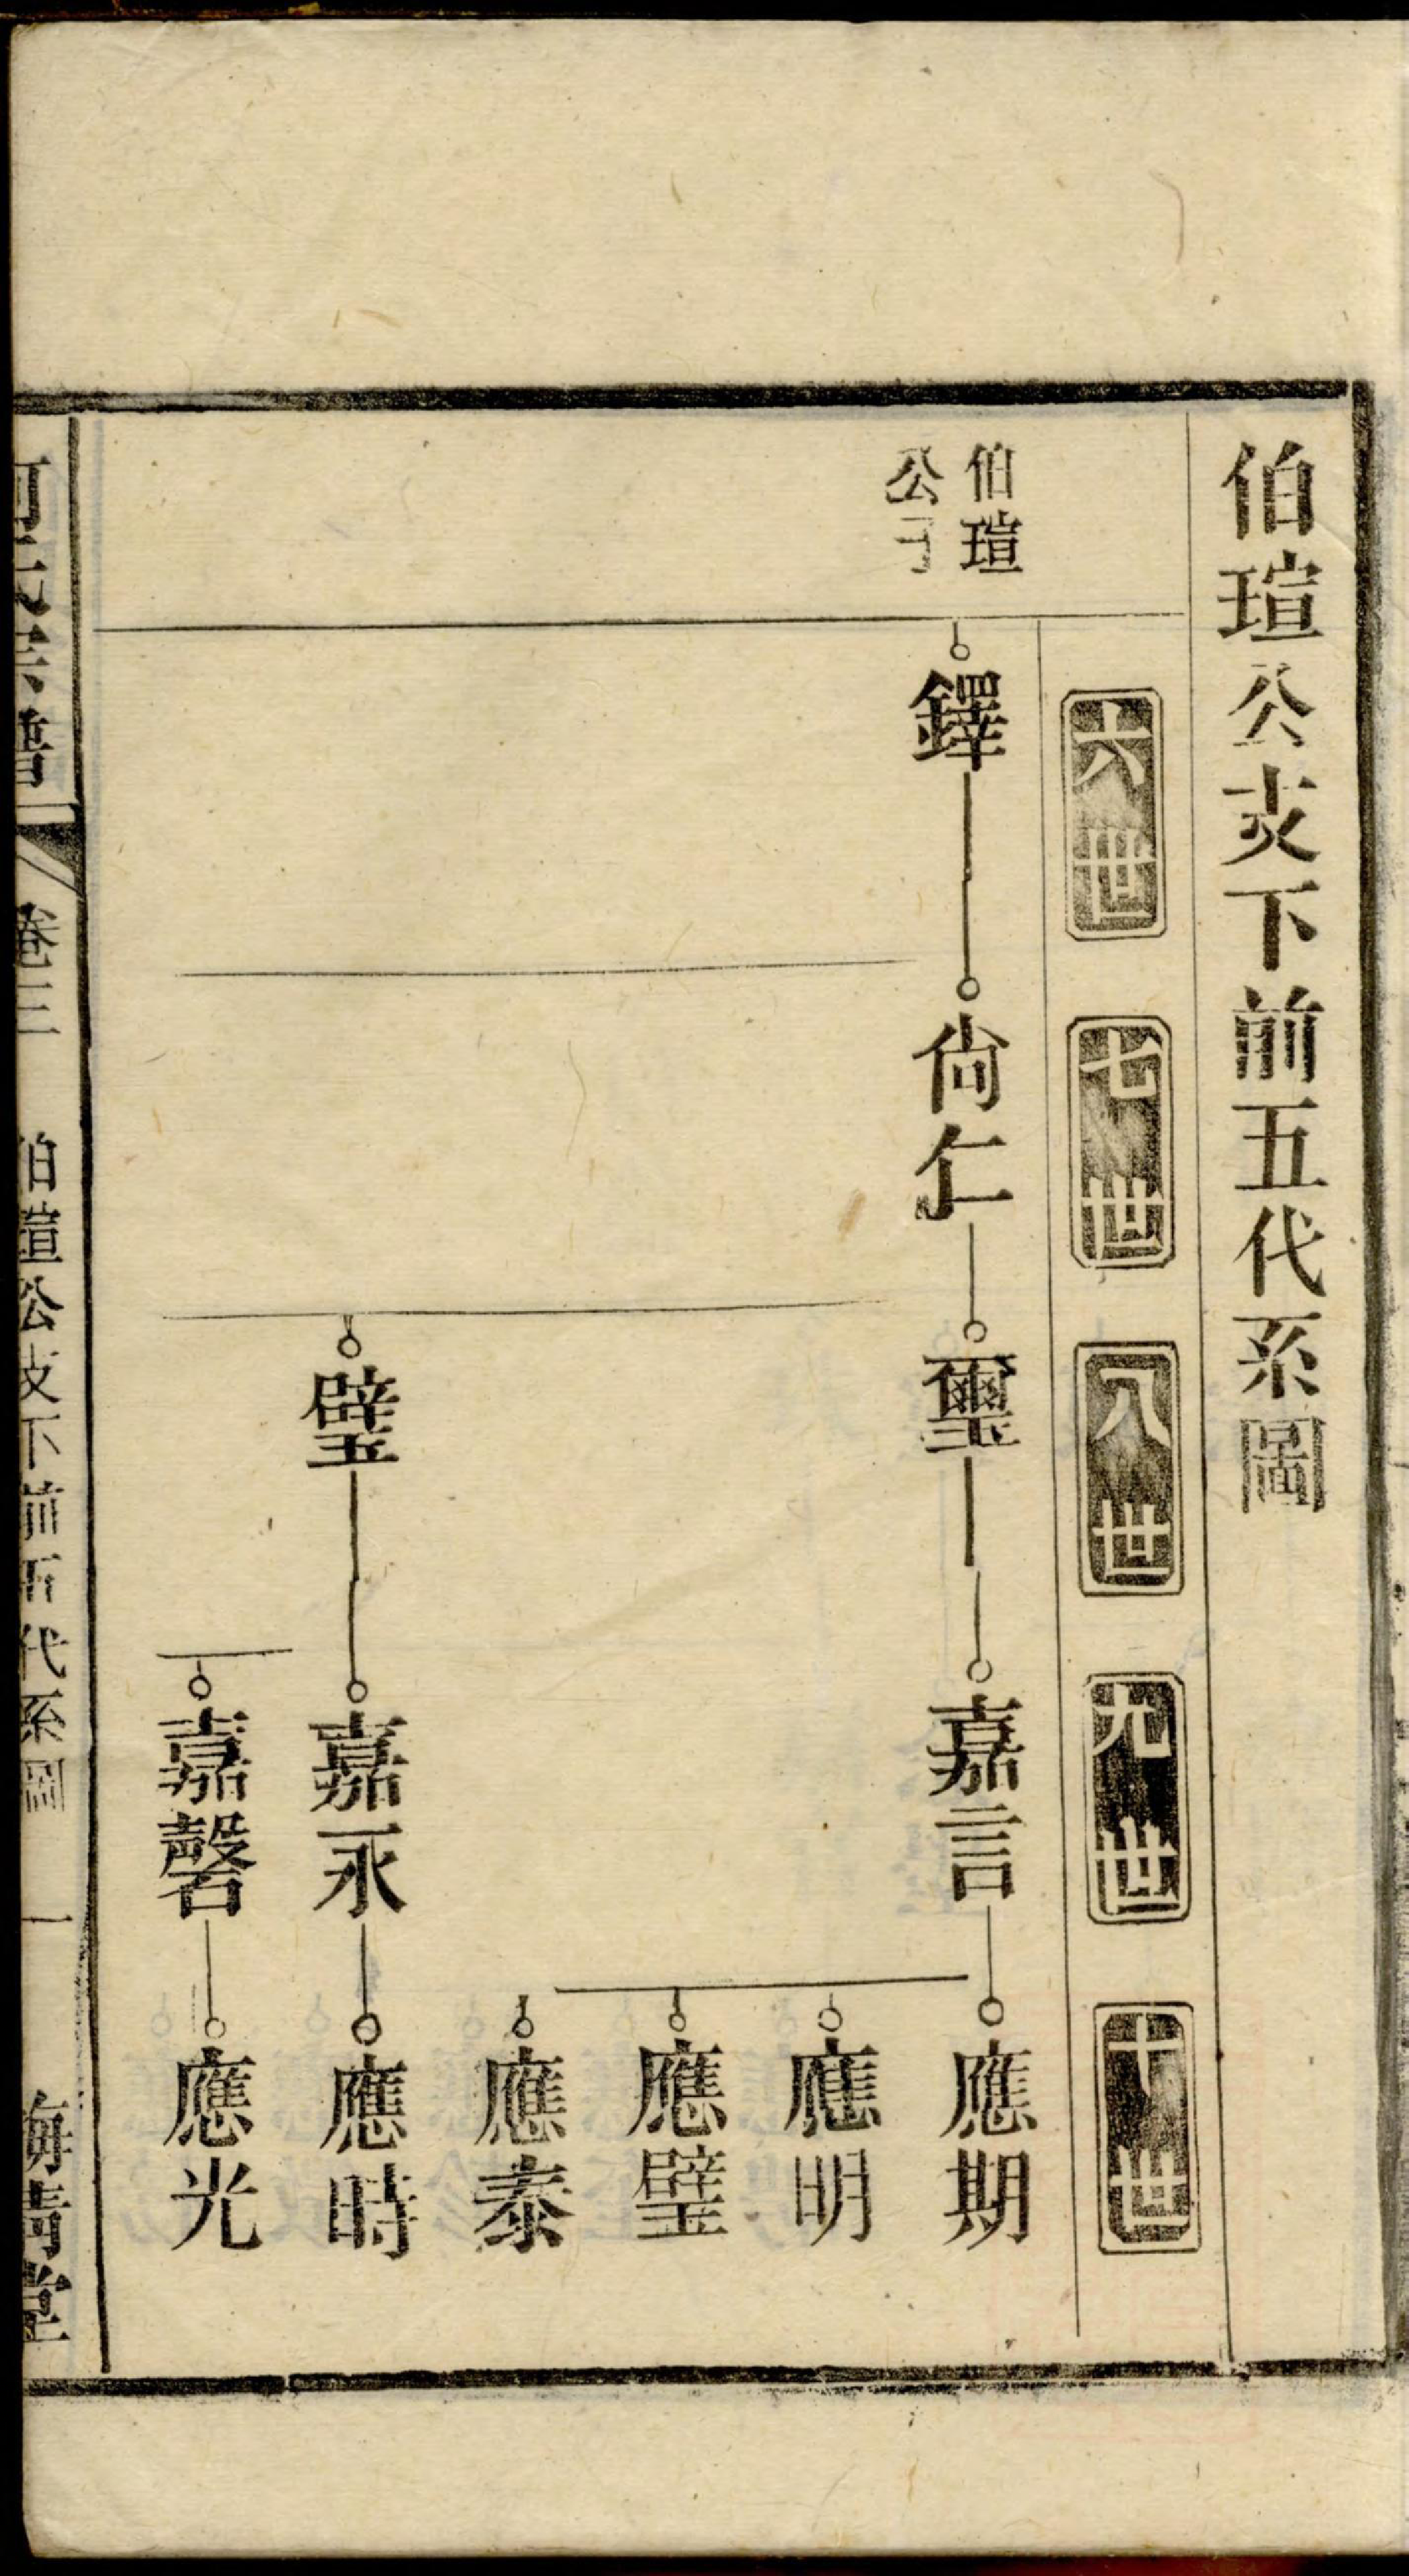 伯瑄公支下前五代系圖
六世
七世
八世
九世
十世
伯瑄
公子
鐸
尙仁
璽
嘉言
應期
應明
應璧
應泰
璧
嘉永
應時
嘉磬
應光
氏宗譜
卷三
伯瑄公支下前五代系圖
一
堂